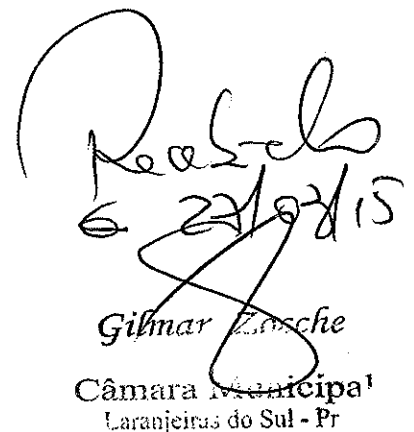 Recebido
27/07/15
Gilmar Zosche
Câmara Municipal
Laranjeiras do Sul - Pr